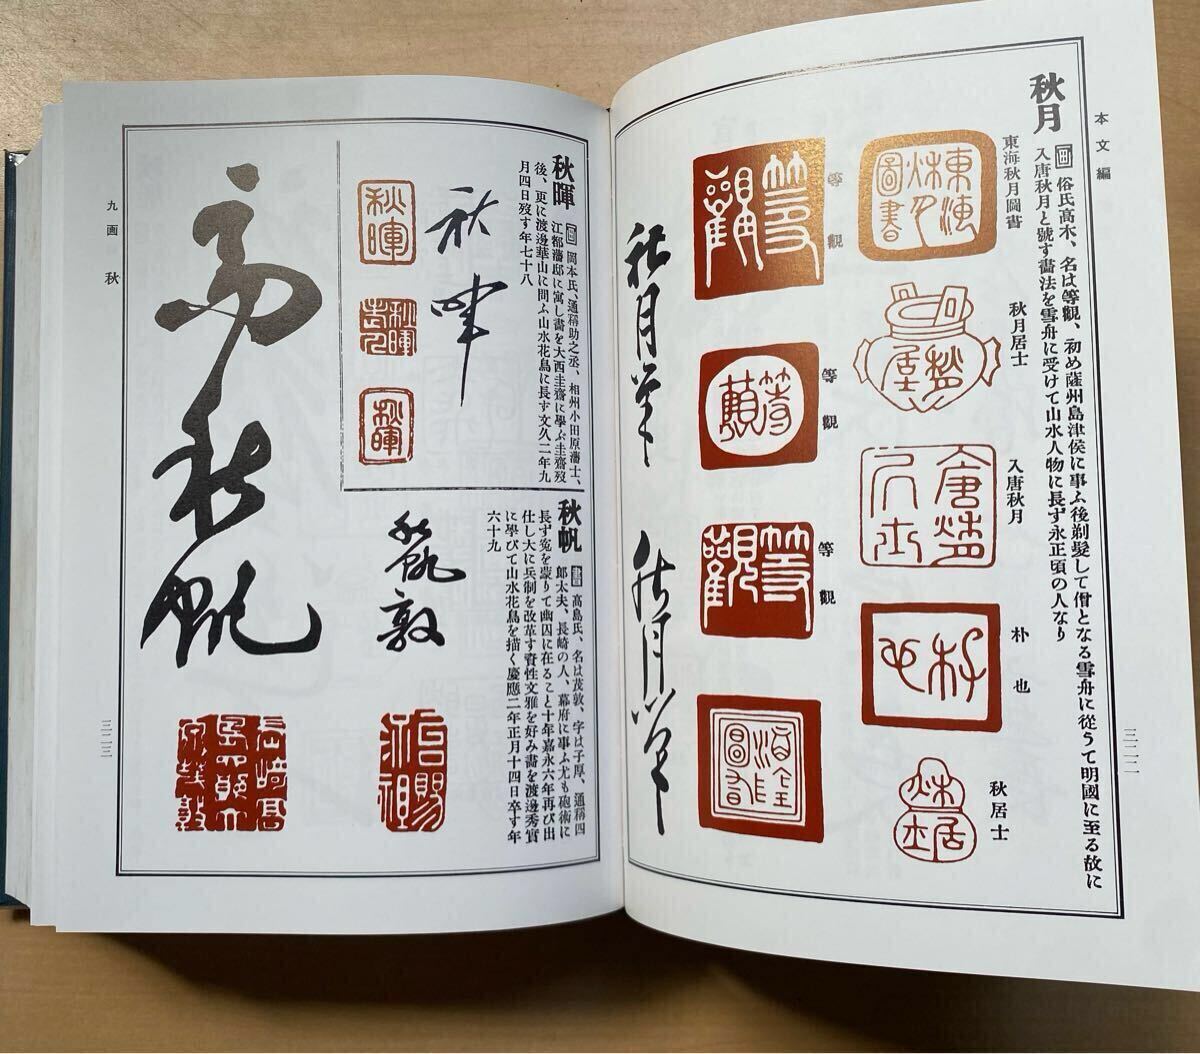 本文編
秋月
画 俗氏高木、名は等觀、初め薩州島津侯に事ふ後剃髮して僧となる雪舟に從うて明國に至る故に
入唐秋月と號す畵法を雪舟に受けて山水人物に長ず永正頃の人なり
東海秋月圖書
秋月居士
入唐秋月
朴也
秋居士
等觀
等觀
等觀
三二二
秋暉
画 岡本氏、通稱助之丞、相州小田原藩士、
江都藩邸に寓し畵を大西圭齋に學ぶ圭齋歿
後、更に渡邊華山に問ふ山水花鳥に長ず文久二年九
月四日歿す年七十八
秋暉
秋暉
秋暉
秋帆
書 高島氏、名は茂敦、字は子厚、通稱四
郎太夫、長崎の人、幕府に事ふ尤も砲術に
長ず寃を蒙りて幽囚に在ること十年嘉永六年再び出
仕し大に兵制を改革す資性文雅を好み畵を渡邊秀實
に學びて山水花鳥を描く慶應二年正月十四日卒す年
六十九
高秋帆
帆敦
九画 秋
三二三